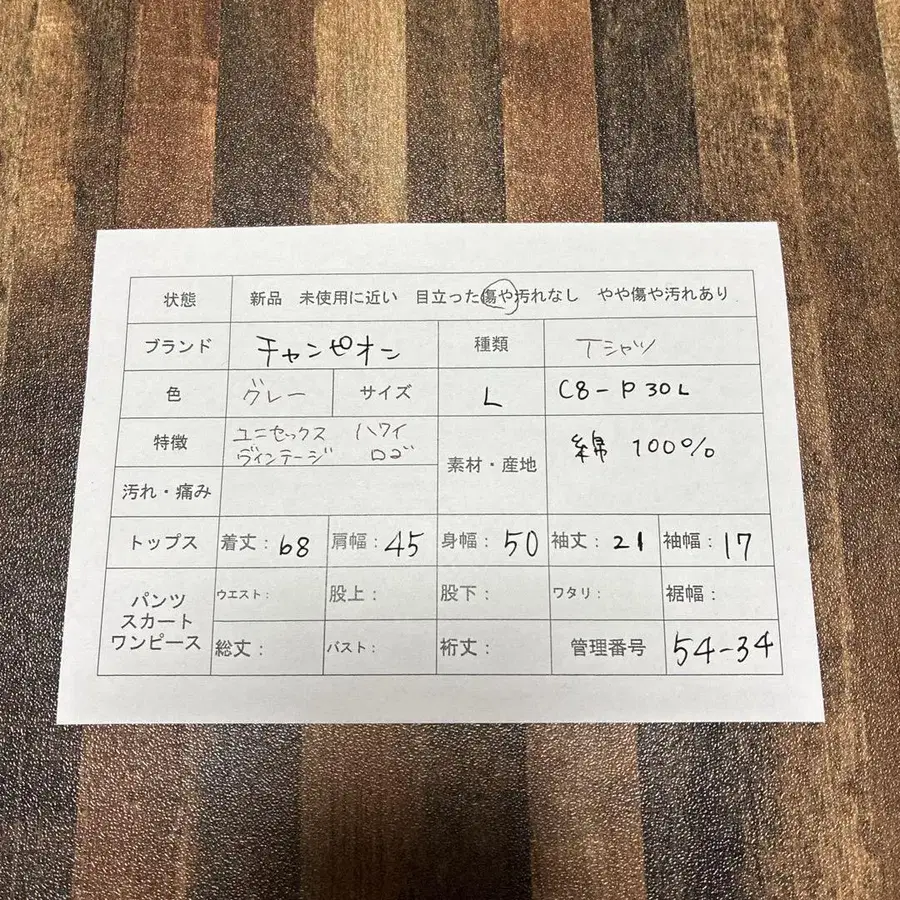 状態 新品 未使用に近い 目立った傷や汚れなし やや傷や汚れあり
ブランド チャンピオン 種類 Tシャツ
色 グレー サイズ L C8-P30L
特徴 ユニセックス ハワイ
ヴィンテージ ロゴ
素材・産地 綿 100%
汚れ・痛み
トップス 着丈:68 肩幅:45 身幅:50 袖丈:21 袖幅:17
パンツ
スカート
ワンピース
ウエスト: 股上: 股下: ワタリ: 裾幅:
総丈: バスト: 裄丈: 管理番号 54-34